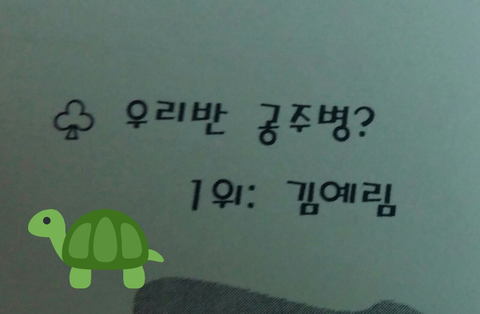 ♧ 우리반 공주병?
1위: 김예림